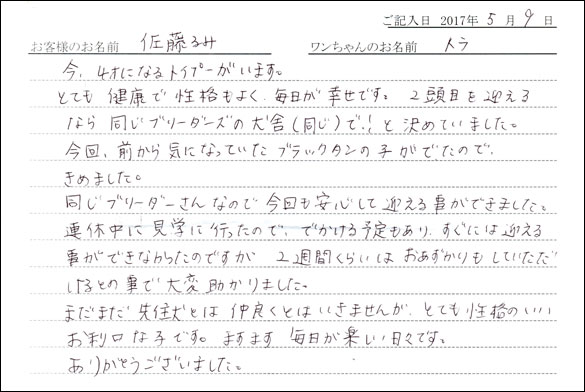 ご記入日 2017年 5 月 9 日
お客様のお名前 佐藤るみ ワンちゃんのお名前 トラ
今、4才になるトイプーがいます。
とても 健康で 性格もよく、毎日が 幸せです。 2頭目を迎える
なら 同じブリーダーズの犬舎(同じ)で!! と 決めていました。
今回、前から 気になっていた ブラックタンの子がでたので、
きめました。
同じブリーダーさんなので 今回も安心して 迎える事ができました。
連休中に 見学に 行ったので、でかける予定もあり、すぐには 迎える
事ができなかったのですが 2週間くらいは おあずかりもしていただ
けるとの事で 大変 助かりました。
まだまだ 先住犬とは 仲良くとは いきませんが、とても 性格のいい
お利口な子です。ますます 毎日が 楽しい日々です。
ありがとうございました。